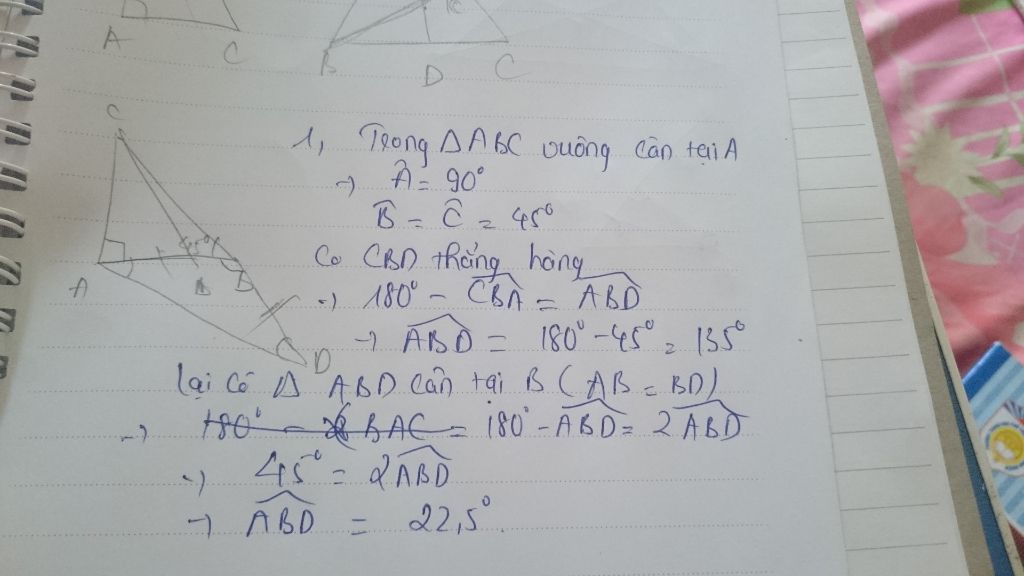 A
C
B
D
C
K
C
A
B
D
45°
1, Trong ΔABC vuông cân tại A
→ Â = 90°
B̂ = Ĉ = 45°
Co CBD thẳng hàng
→ 180° - CBA = ABD
→ ABD = 180° - 45° = 135°
lại có Δ ABD cân tại B (AB = BD)
→ 180° - 2 BAC = 180° - ABD = 2 ABD
→ 45° = 2 ABD
→ ABD = 22,5°.